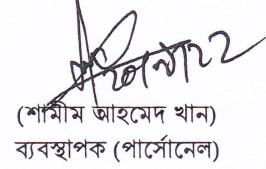 (শামীম আহমেদ খান)
ব্যবস্থাপক (পার্সোনেল)